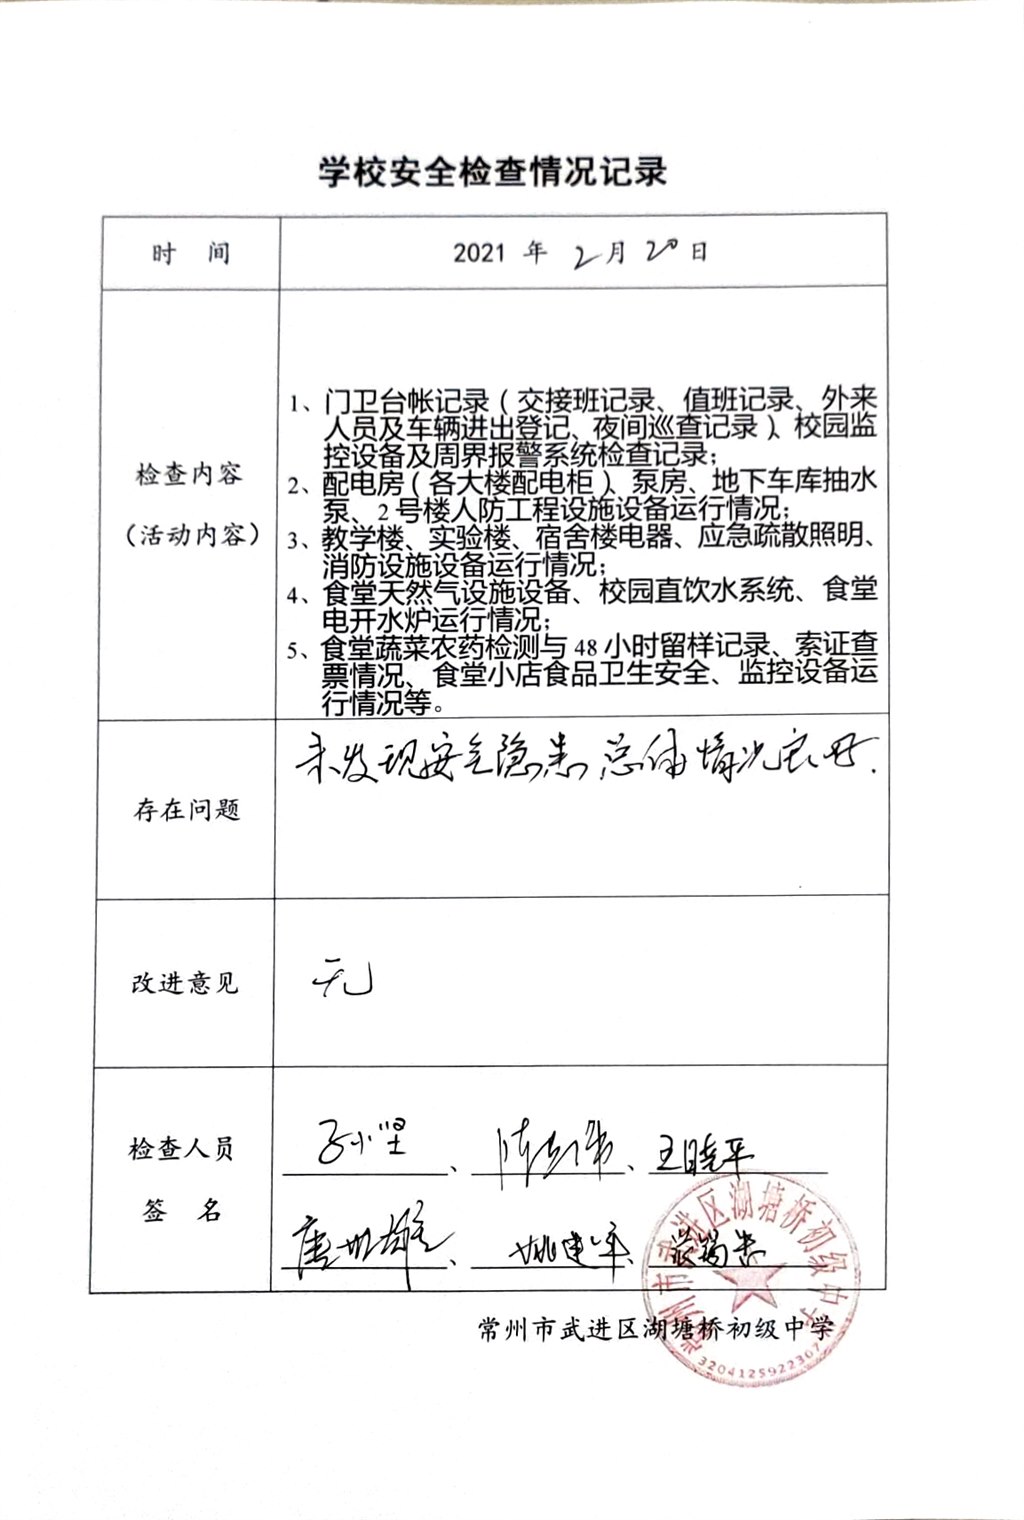 学校安全检查情况记录
时 间
2021 年 2月 20日
检查内容
(活动内容)
1、门卫台帐记录(交接班记录、值班记录、外来
人员及车辆进出登记、夜间巡查记录)、校园监
控设备及周界报警系统检查记录;
2、配电房(各大楼配电柜)、泵房、地下车库抽水
泵、2号楼人防工程设施设备运行情况;
3、教学楼、实验楼、宿舍楼电器、应急疏散照明、
消防设施设备运行情况;
4、食堂天然气设施设备、校园直饮水系统、食堂
电开水炉运行情况;
5、食堂蔬菜农药检测与48小时留样记录、索证查
票情况、食堂小店食品卫生安全、监控设备运
行情况等。
存在问题
未发现安全隐患,总体情况良好.
改进意见
无
检查人员
签 名
、 、王晓平
、姚建军、
常州市武进区湖塘桥初级中学
常州市武进区湖塘桥初级中学
3204125922307